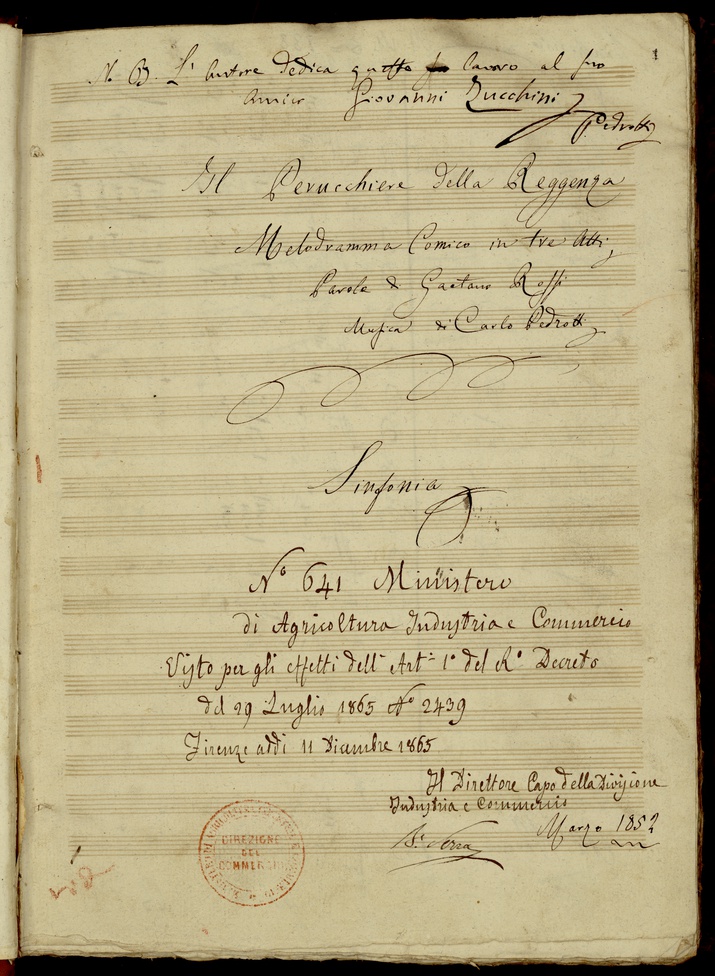 1
N. B. L' Autore dedica questo lavoro al suo
amico Giovanni Zucchini
Pedrotti
Il Perucchiere della Reggenza
Melodramma Comico in tre Atti
Parole di Gaetano Rossi
Musica di Carlo Pedrotti
Sinfonia
N° 641 Ministero
di Agricoltura Industria e Commercio
Visto per gli effetti dell' Art. 1° del R° Decreto
del 29 Luglio 1865 N° 2439
Firenze addi 11 Dicembre 1865
Il Direttore Capo della Divisione
Industria e Commercio
Marzo 1852
Serra
DIREZIONE
DEL
COMMERCIO